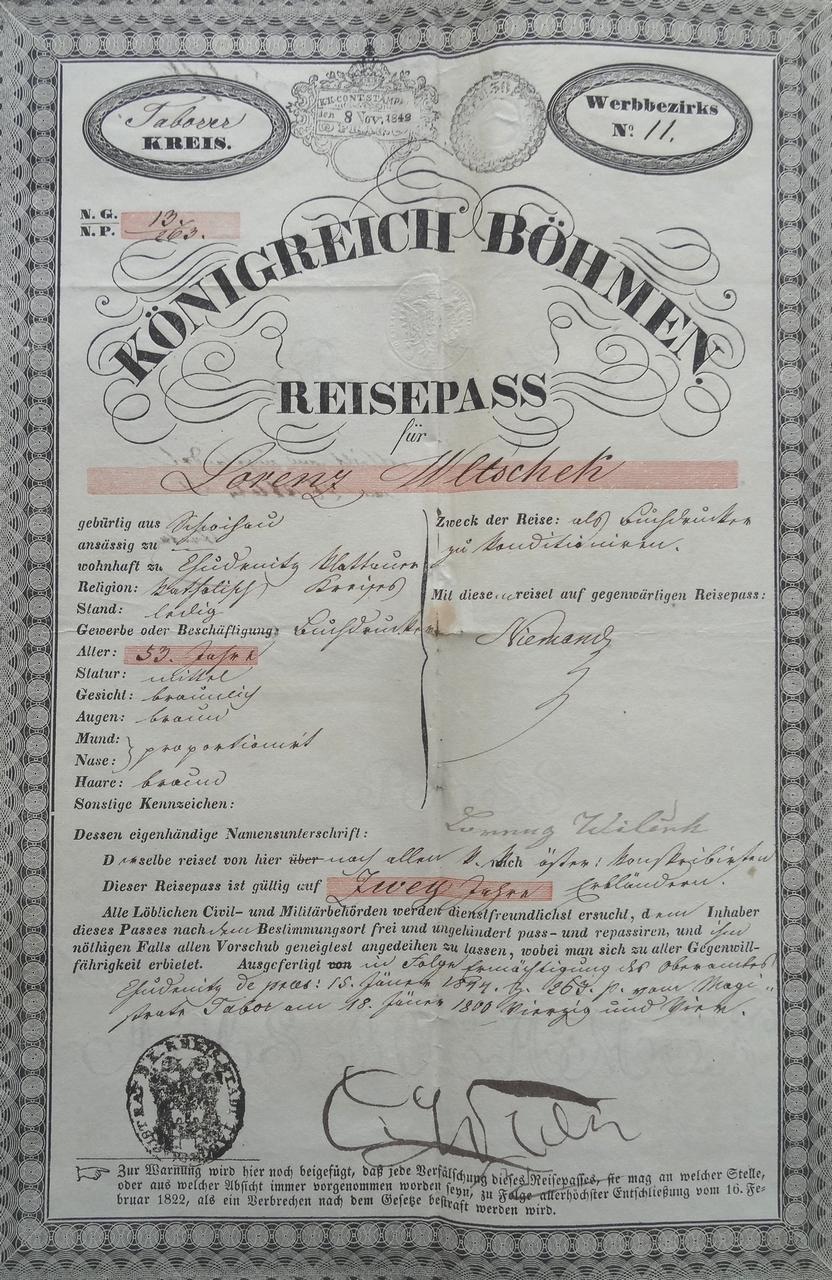 Taborer
KREIS.
K.K. CONT. STAMP.
den 8 Nov. 1842
30
Werbbezirks
No. 11.
N. G. 13.
N. P. 263.
KÖNIGREICH BÖHMEN.
REISEPASS
für
Lorenz Wltschek
gebürtig aus Schoihau
ansässig zu
wohnhaft zu Chudenitz Klattauer
Religion: Katholisch Kreises
Stand: ledig
Gewerbe oder Beschäftigung: Buchdrucker
Alter: 53. Jahre
Statur: mittel
Gesicht: braunlich
Augen: braun
Mund:
Nase: proportionirt
Haare: braun
Sonstige Kennzeichen:
Zweck der Reise: als Buchdrucker
zu konditioniren.
Mit diesem reiset auf gegenwärtigen Reisepass:
Niemand
Dessen eigenhändige Namensunterschrift: Lorenz
Derselbe reiset von hier über nach allen K. K. nach österr: konskribirten
Dieser Reisepass ist gültig auf Zwey Jahre Erbländern.
Alle Löblichen Civil- und Militärbehörden werden dienstfreundlichst ersucht, dem Inhaber
dieses Passes nach dem Bestimmungsort frei und ungehindert pass- und repassiren, und ihm
nöthigen Falls allen Vorschub geneigtest angedeihen zu lassen, wobei man sich zu aller Gegenwill-
fährigkeit erbietet. Ausgefertigt von in Folge Ermächtigung des Oberamtes
Chudenitz de praes: 15. Jäner 1844. Z. 263. p. vom Magi-
strate Tabor am 18. Jäner 1800 Vierzig und Vier.
☞ Zur Warnung wird hier noch beigefügt, daß jede Verfälschung dieses Reisepasses, sie mag an welcher Stelle,
oder aus welcher Absicht immer vorgenommen worden seyn, zu Folge allerhöchster Entschließung vom 16. Fe-
bruar 1822, als ein Verbrechen nach dem Gesetze bestraft werden wird.